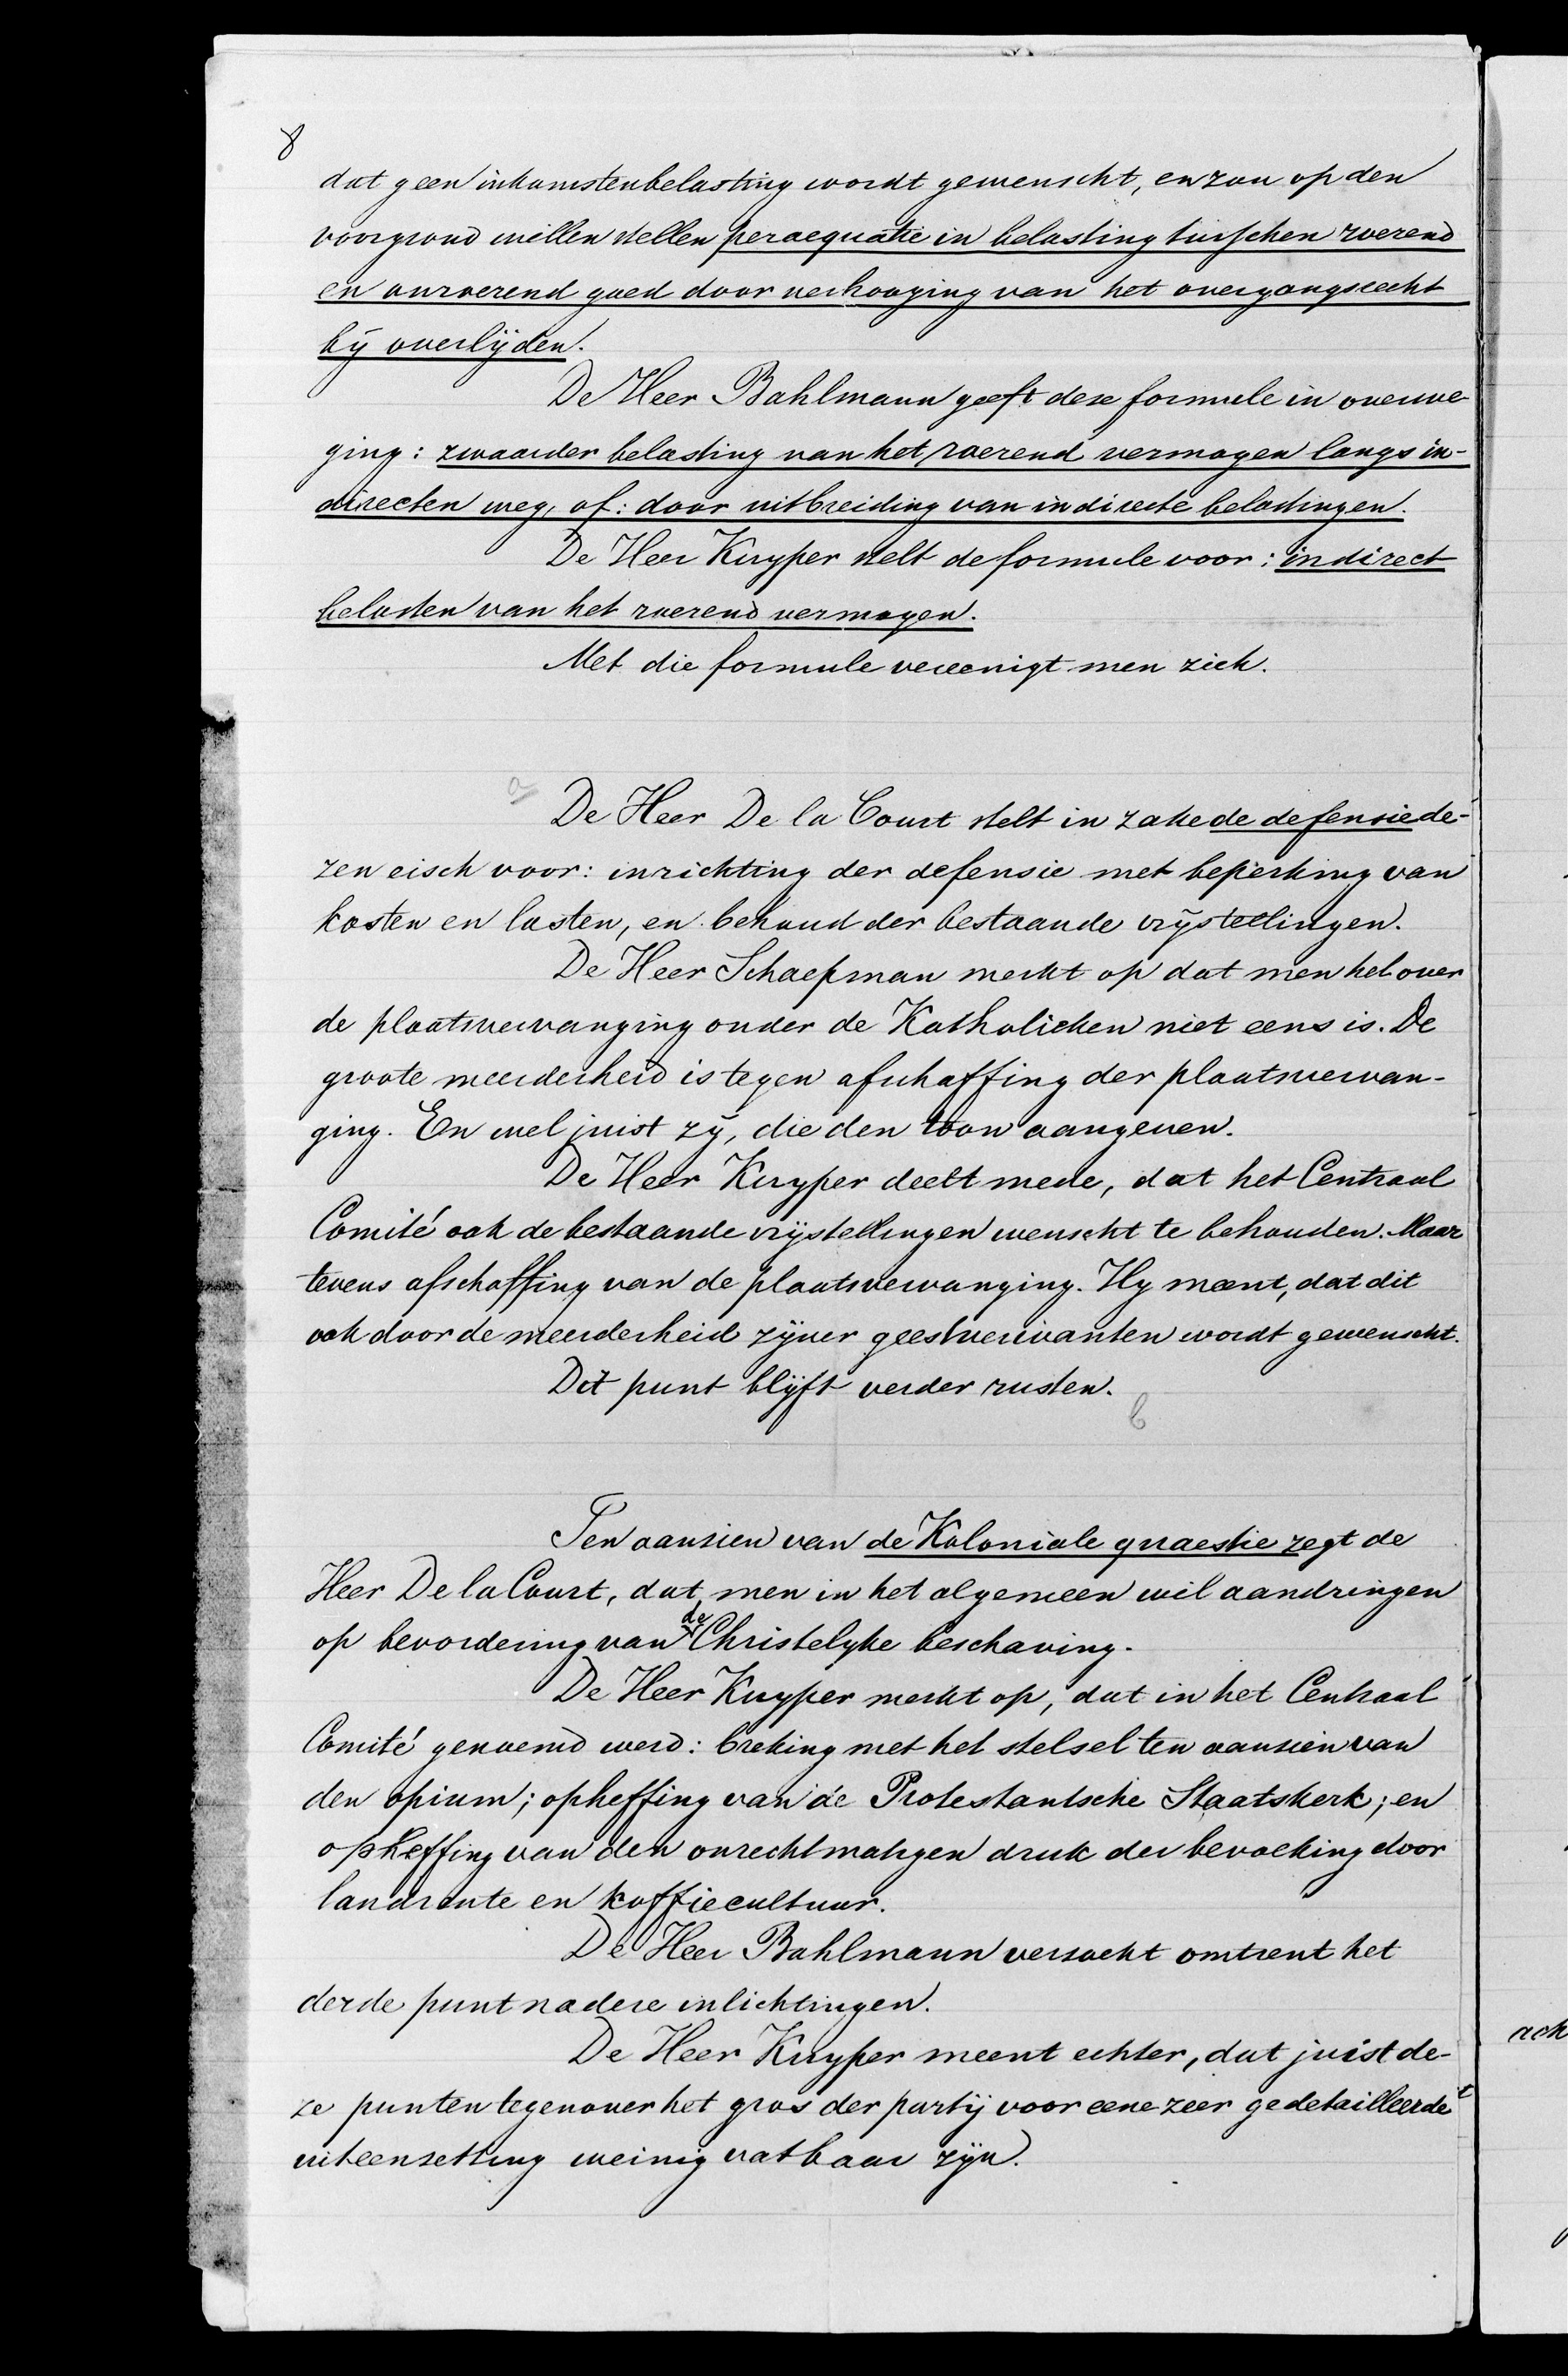 8
dat geen inkomstenbelasting wordt gewenscht, en zou op den
voorgrond willen stellen peraequatie in belasting tusschen roerend
en onroerend goed door verhooging van het overgangsrecht
bij overlijden.
De Heer Bahlmann geeft deze formule in overwe-
ging: zwaarder belasting van het roerend vermogen langs in-
directen weg, of: door uitbreiding van indirecte belastingen.
De Heer Kuyper stelt de formule voor: indirect
belasten van het roerend vermogen.
Met die formule vereenigt men zich.
a
De Heer De la Court stelt in zake de defensie de-
zen eisch voor: inrichting der defensie met beperking van
kosten en lasten, en behoud der bestaande vrijstellingen.
De Heer Schaepman merkt op dat men het over
de plaatsvervanging onder de Katholieken niet eens is. De
groote meerderheid is tegen afschaffing der plaatsvervan-
ging. En wel juist zij, die den toon aangeven.
De Heer Kuyper deelt mede, dat het Centraal
Comité ook de bestaande vrijstellingen wenscht te behouden. Maar
tevens afschaffing van de plaatsvervanging. Hy meent, dat dit
ook door de meerderheid zijner geestverwanten wordt gewenscht.
Dit punt blijft verder rusten.
b
Ten aanzien van de Koloniale quaestie zegt de
Heer De la Court, dat men in het algemeen wil aandringen
op bevordering van de Christelyke beschaving.
De Heer Kuyper merkt op, dat in het Centraal
Comité genoemd werd: breking met het stelsel ten aanzien van
den opium; opheffing van de Protestantsche Staatskerk; en
opheffing van den onrechtmatigen druk der bevolking door
landrente en koffiecultuur.
De Heer Bahlmann verzoekt omtrent het
derde punt nadere inlichtingen.
De Heer Kuyper meent echter, dat juist de-
ze punten tegenover het gros der partij voor eene zeer gedetailleerde
uiteenzetting weinig vatbaar zijn.